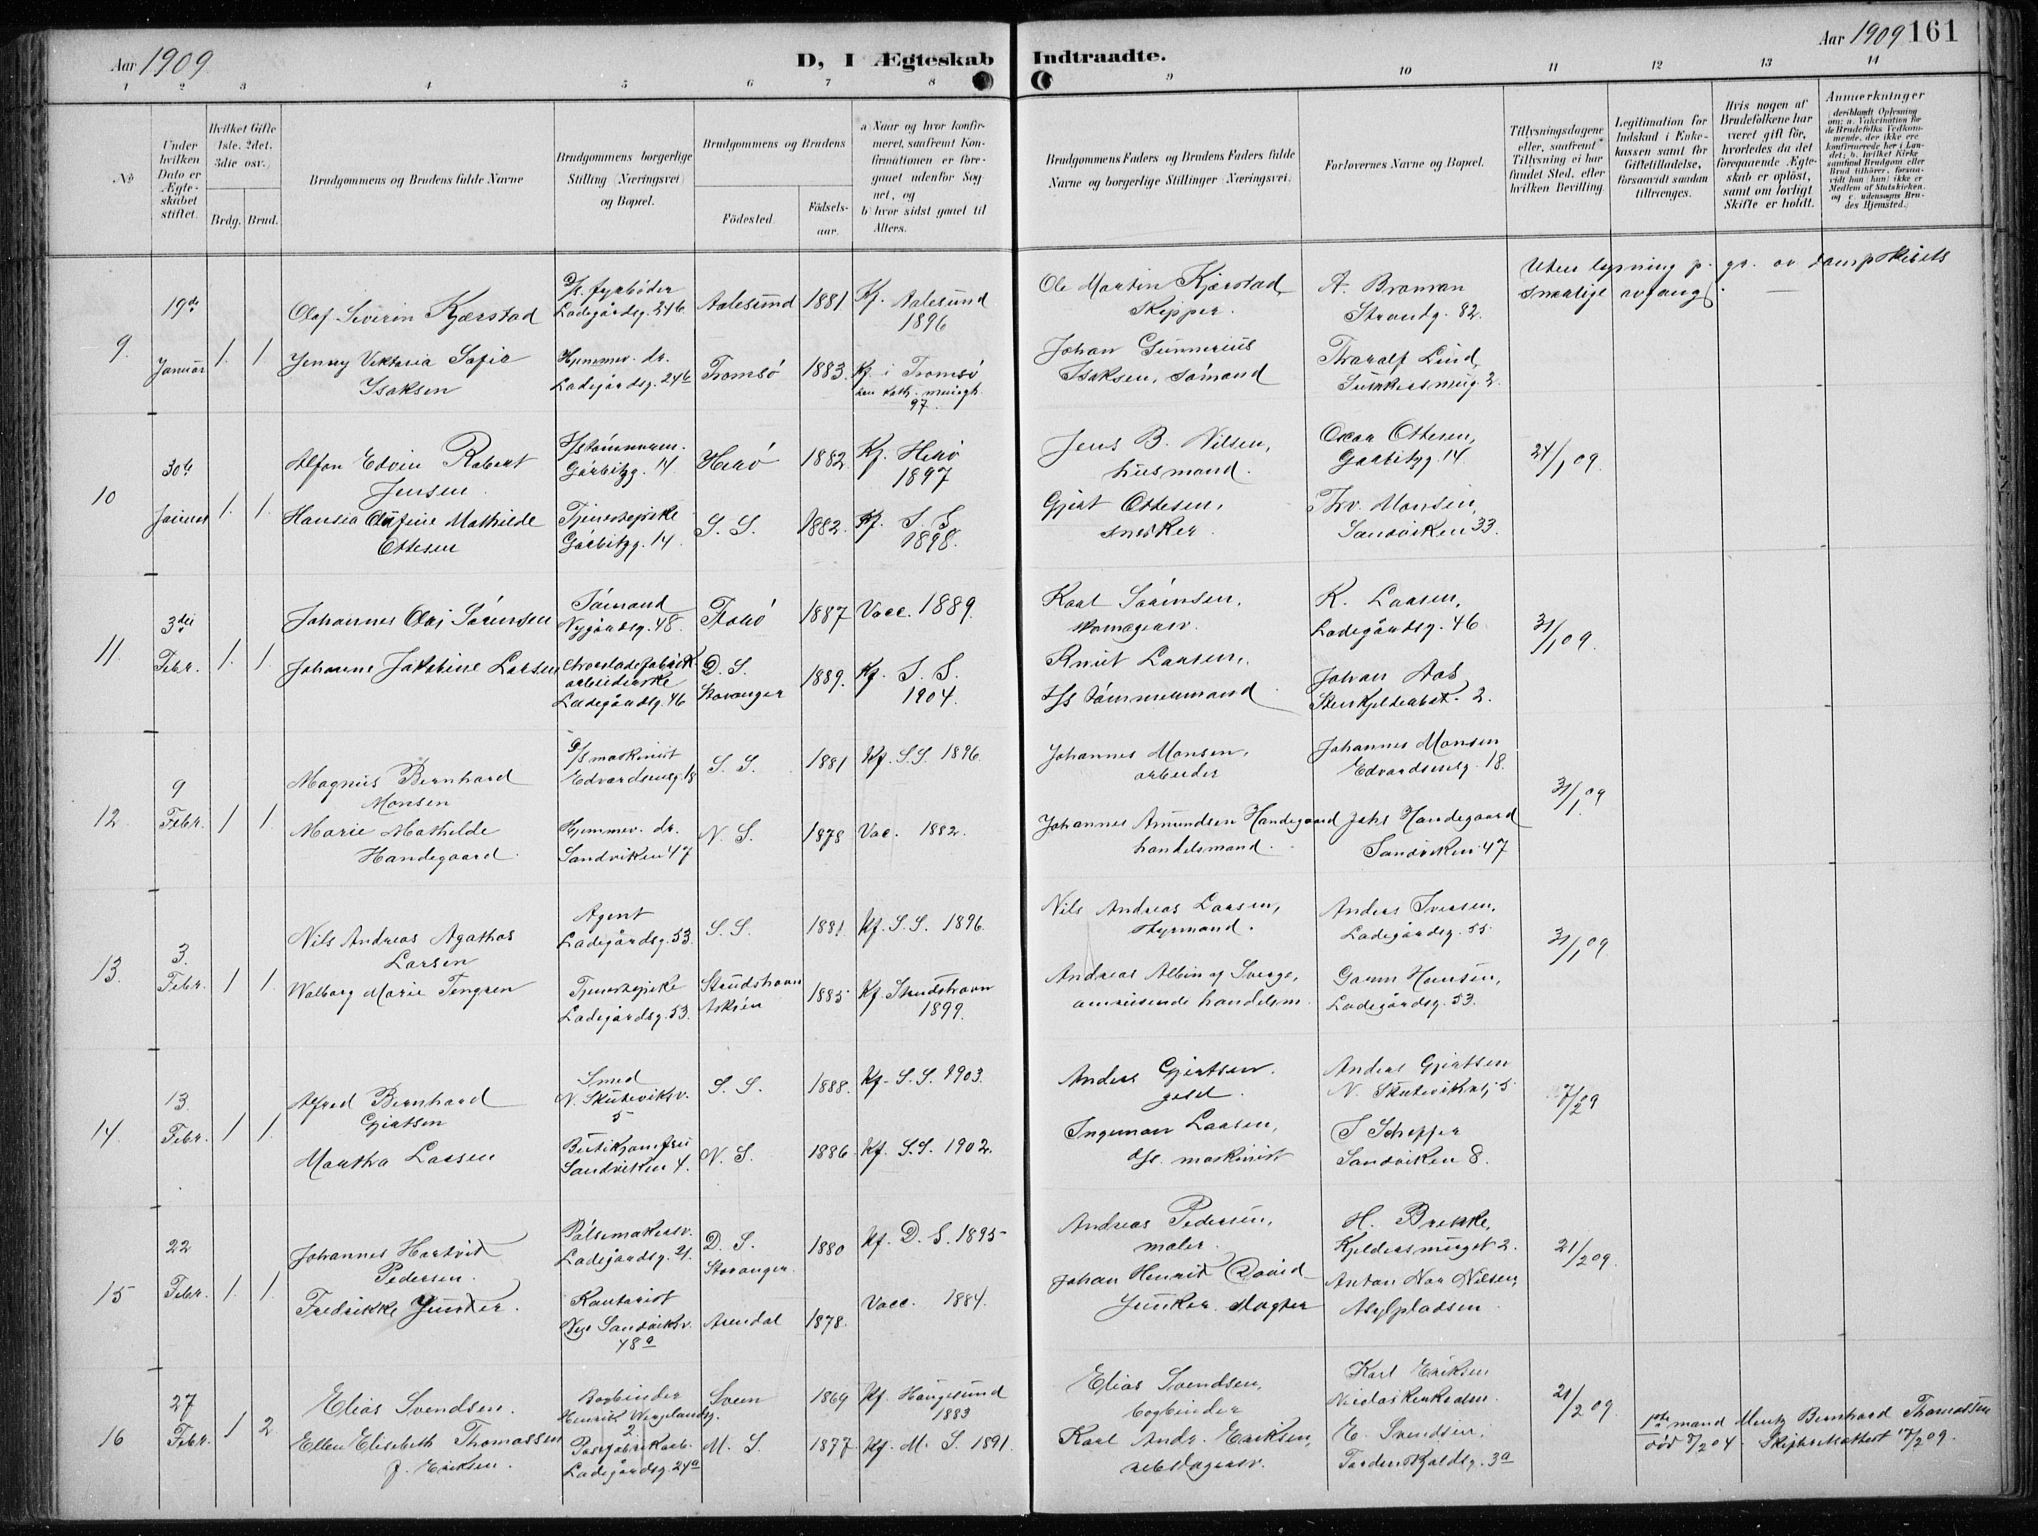 Aar 1909
D, I Ægteskab Indtraadte.
Aar 1909 161
1 2 3 4 5 6 7 8 9 10 11 12 13 14
No
Under hvilken Dato er Ægteskabet stiftet.
Hvilket Gifte 1ste, 2det, 3die osv.)
Brdg. Brud.
Brudgommens og Brudens fulde Navne
Brudgommens borgerlige Stilling (Næringsvei) og Bopæl.
Brudgommens og Brudens
Fødested.
Fødselsaar.
a) Naar og hvor konfirmeret, saafremt Konfirmationen er foregaaet udenfor Sognet, og
b) hvor sidst gaaet til Alters.
Brudgommens Faders og Brudens Faders fulde Navne og borgerlige Stillinger (Næringsvei)
Forlovernes Navne og Bopæl.
Tillysningsdagene eller, saafremt Tillysning ei har fundet Sted, efter hvilken Bevilling.
Legitimation for Indskud i Enkekassen samt for Giftetilladelse, forsaavidt saadan tiltrænges.
Hvis nogen af Brudefolkene har været gift før, hvorledes da det foregaaende Ægteskab er opløst, samt om lovligt Skifte er holdt.
Anmærkninger
(deriblandt Oplysning om: a. Vakcination for de Brudefolks Vedkommende, der ikke ere konfirmerede her i Landet; b. hvilket Kirkesamfund Brudgom eller Brud tilhører, forsaavidt han (hun) ikke er Medlem af Statskirken, og c. udensogns Brudes Hjemsted.)
9. 19de Januar 1. 1.
Olaf Severin Kjærstad
D/s. fyrbøder Ladegårdsg. 246
Aalesund 1881. Kf. Aalesund 1896
Ole Martin Kjærstad, Skipper.
A. Broman Strandg. 82.
Uten lysning p. gr. av dampskibets snarlige avgang.
Jenny Viktoria Sofie Isaksen
Hjemmev. dr. Ladegårdsg. 246
Tromsø 1883. Kf. i Tromsø 97.
Johan Gunnerius Isaksen, sømand
Tharalf Lind,
10 30te Januar 1. 1.
Alfon Edvin Robert Jensen.
Hstømmerm. Garbitzg. 14
Herø 1882. Kf. Herø 1897
Jens B. Nilsen, husmand.
Oscar Ottesen, Garbitzg. 14
24/1 09.
Hansia Olufine Mathilde Ottesen
Tjenestepike Garbitzg. 14.
S. S. 1882. Kf. S. S. 1898.
Gjert Ottesen, snedker.
Thv. Monsen, Sandviken 33.
11. 3die Febr. 1. 1.
Johannes Olai Sørensen
Sømand Nygårdsg. 48.
Florø 1887 Vacc. 1889.
Karl Sørensen, skomagersv.
K. Larsen, Ladegårdsg. 46
31/1 09.
Johanne Jakobine Larsen
Chocoladefabrik arbeiderske Ladegårdsg. 46
D. S. Stavanger 1889. Kf. S. S. 1904.
Knut Larsen, Hs tømmermand
Johan Aas 2.
12. 9 Febr. 1 1.
Magnus Bernhard Monsen
D/s maskinist Edvardsensg. 18
S. S. 1881 Kf. S.S. 1896.
Johannes Monsen, arbeider
Johannes Monsen Edvardsensg. 18.
31/1 09.
Marie Mathilde Handegaard.
Hjemmev. dr. Sandviken 47
N. S. 1878 Vac. 1882.
Johannes Amundsen Handegaard handelsmand.
Johs Handegaard Sandviken 47
13. 3. Febr. 1 1.
Nils Andreas Agathos Larsen
Agent Ladegårdsg. 53.
S. S. 1881. Kf. S. S. 1896.
Nils Andreas Larsen, styrmand.
Anders Iversen, Ladegårdsg. 55
31/1 09
Walborg Marie Tengren
Tjenestepike Ladegårdsg. 53.
Strudshavn Askøen 1885 Kf. Strudshavn 1899.
Andreas Albin af Sverge, omreisende handelsm.
Hansen, Ladegårdsg. 53.
14. 13 Febr. 1 1.
Alfred Bernhard Gjertsen
Smed N. Skuteviksv. 5
S. S. 1888. Kf. S. S. 1903.
Anders Gjertsen.
Anders Gjertsen N. Skuteviksv. 5
7/2 09
Martha Larsen
Butikjomfru Sandviken 4.
N. S. 1886. Kf. S.S. 1902.
Ingeman Larsen, D/s. maskinist
Sandviken 8.
15 22 Febr. 1. 1.
Johannes Hartvik Pedersen.
Pølsemakersv. Ladegårdsg. 21.
D. S. Stavanger. 1880 Kf. D. S. 1895
Andreas Pedersen, maler.
H. Brekke, 2.
21/2 09.
Fredrikke Junker.
Kontorist Nye Sandviksv. 48a
Arendal 1878. Vacc. 1884.
Johan Henrik David Junker. slagter
Anton Nilsen, Asylpladsen.
16 27 Febr. 1 2.
Elias Svendsen.
Bogbinder Henrik Wergelandsg. 2
Sveen 1869 Kf. Haugesund 1883
Elias Svendsen, bogbinder
Karl Eriksen
21/2 09
Ellen Elisebeth Thomassen f. Eriksen.
Ladegårdsg. 24a
M. S. 1877. Kf. M. S. 1891.
Karl Andr. Eriksen, rebslagersv.
E. Svendsen, Tordenskjoldsg. 3a
1ste mand Mentz Bernhard Thomassen død 04. Skifteattest 17/2 09.